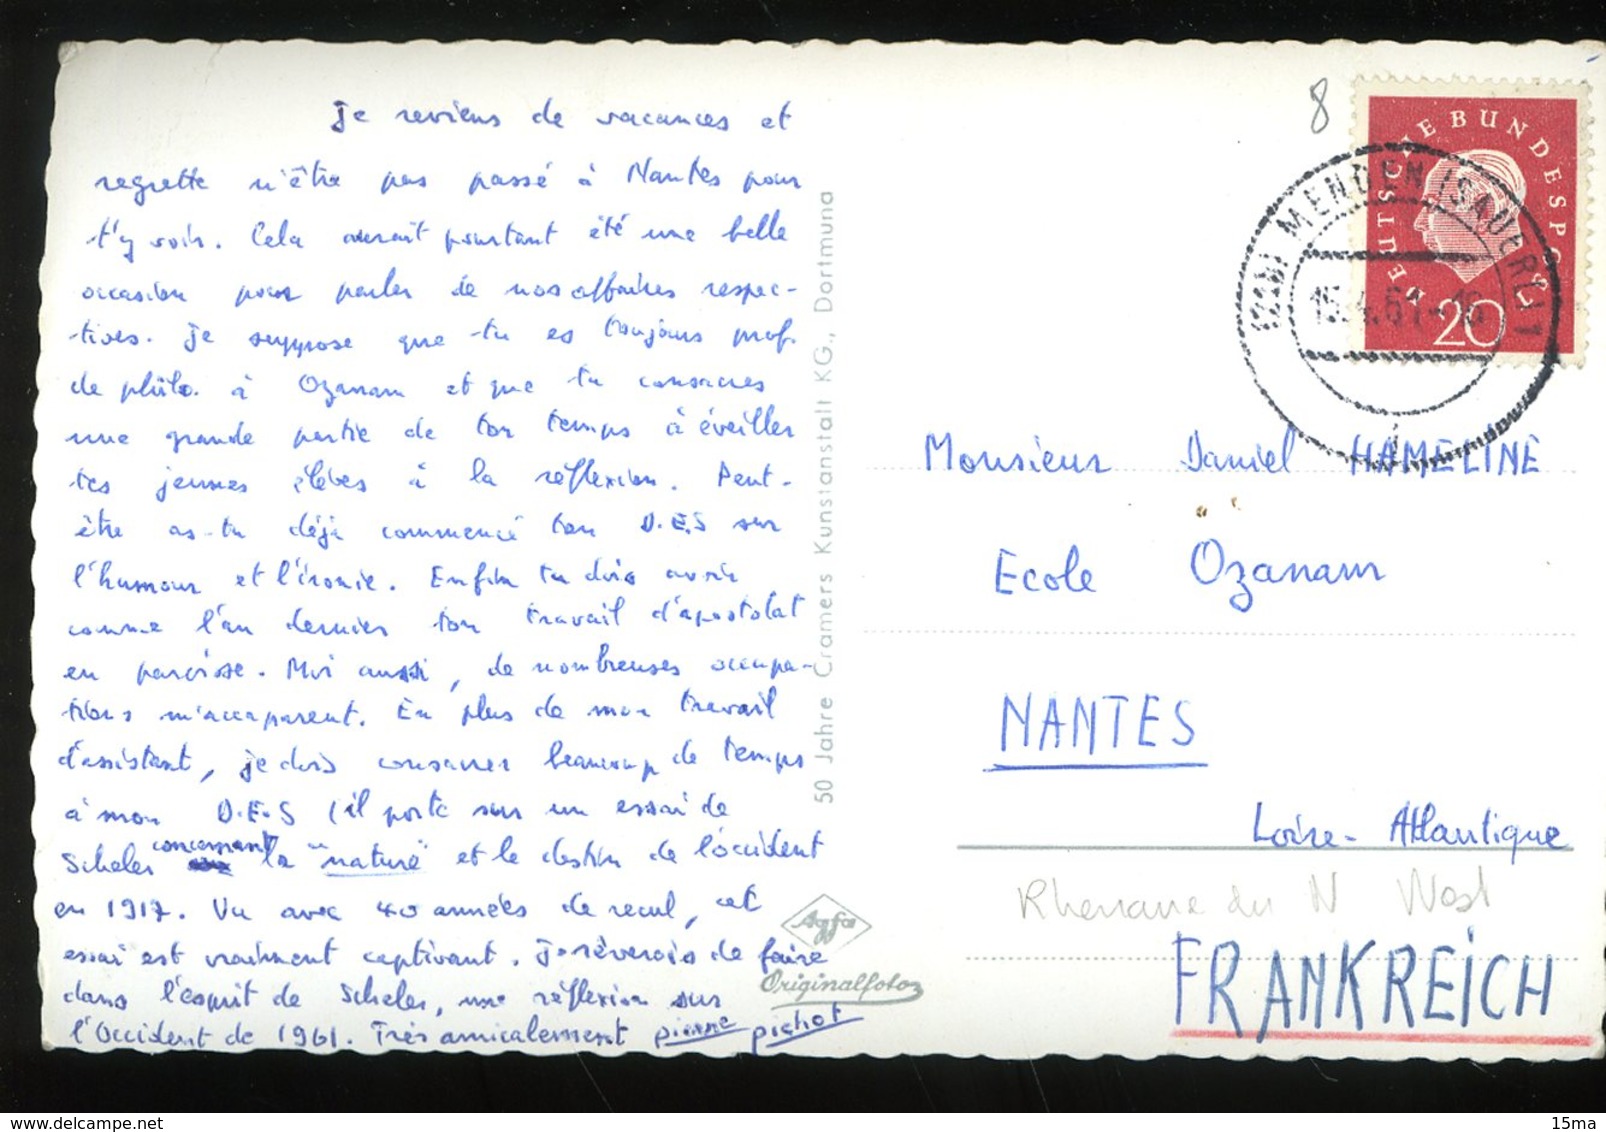 Je reviens de vacances et
regrette n'être pas passé à Nantes pour
t'y voir. Cela aurait pourtant été une belle
occasion pour parler de nos affaires respec-
tives. Je suppose que tu es toujours prof.
de philo. à Ozanam et que tu consacres
une grande partie de ton temps à éveiller
tes jeunes élèves à la réflexion. Peut-
être as-tu déjà commencé ton D.E.S sur
l'humour et l'ironie. Enfin tu dois avoir
comme l'an dernier ton travail d'apostolat
en paroisse. Moi aussi, de nombreuses occupa-
tions m'accaparent. En plus de mon travail
d'assistant, je dois consacrer beaucoup de temps
à mon D.E.S (il porte sur un essai de
Scheler concernant la "nature" et le destin de l'occident
en 1917. Vu avec 40 années de recul, cet
essai est vraiment captivant. Je rêverais de faire
dans l'esprit de Scheler, une réflexion sur
l'Occident de 1961. Très amicalement pierre pichot
50 Jahre Cramers Kunstanstalt KG., Dortmund
Agfa
Originalfoto
8
DEUTSCHE BUNDESPOST
20
MENDEN (SAUERL) 1
15.4.61-16
Monsieur Daniel HAMELINE
Ecole Ozanam
NANTES
Loire-Atlantique
Rhenanie du N West
FRANKREICH
15ma